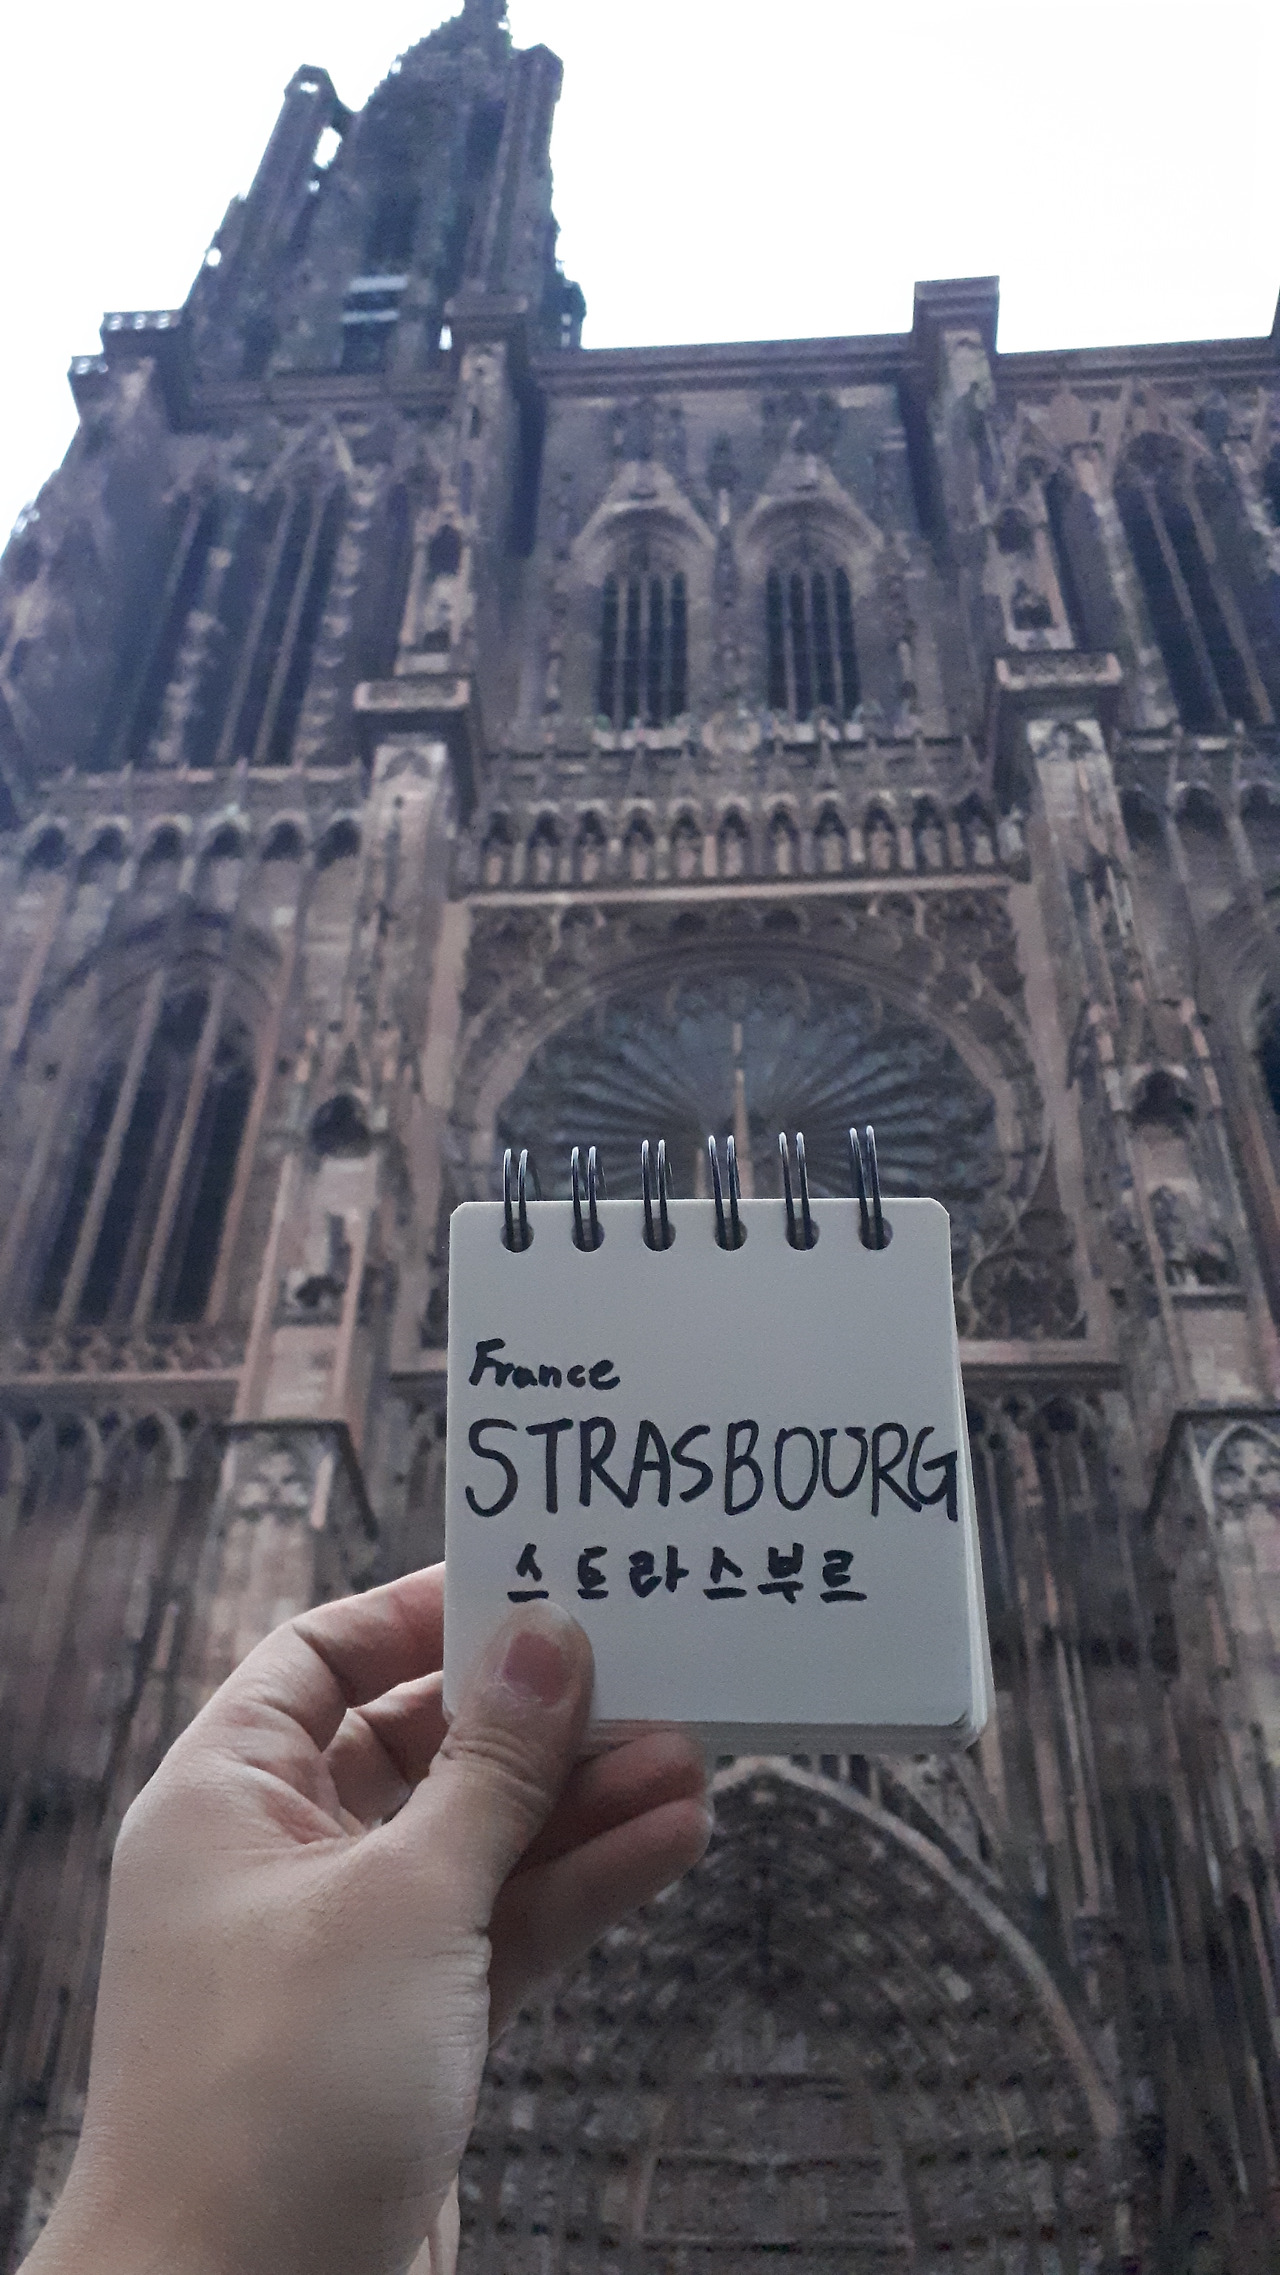 France
STRASBOURG
스트라스부르